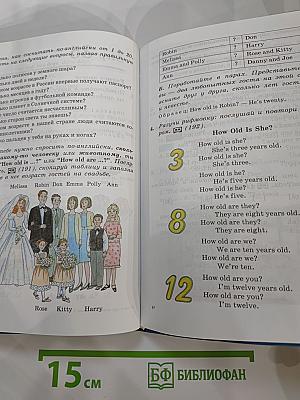 как посчитать по-английски от 1 до 20.
на следующие вопросы, назвав правильную
полюсов у земного шара?
возрасте в России впервые получают паспорт
игроков в футбольной команде?
планет в Солнечной системе?
число считается несчастливым?
возрасте в нашей стране люди считаются
пальцев у тебя на руках и ногах?
тебе нужно спросить по-английски, сколь
лет какому-то человеку или животному, ты
"How old is ...?" или "How old are ...?". Послу
(191), скопируй таблицу и запиши
в неё возраст гостей на свадьбе.
Melissa Robin Don Emma Polly Ann
Rose Kitty Harry
Robin ? Don
Melissa ? Harry
Emma and Polly ? Rose and Kitty
Ann ? Danny and Joe
B. Поработайте в парах. Представьте
— два любопытных гостя на этой
друг у друга, сколько лет
Образец: How old is Robin? — He's twenty.
4. Разучи рифмовку: послушай и повтори
(192).
How Old Is She?
3
How old is she?
She's three years old.
How old is she?
She's three.
How old is he?
He's five years old.
How old is he?
He's five.
8
How old are they?
They are eight years old.
How old are they?
They are eight.
How old are we?
We are ten years old.
How old are we?
We're ten.
12
How old are you?
I'm twelve years old.
How old are you?
I'm twelve.
15 см БФ БИБЛИОФАН